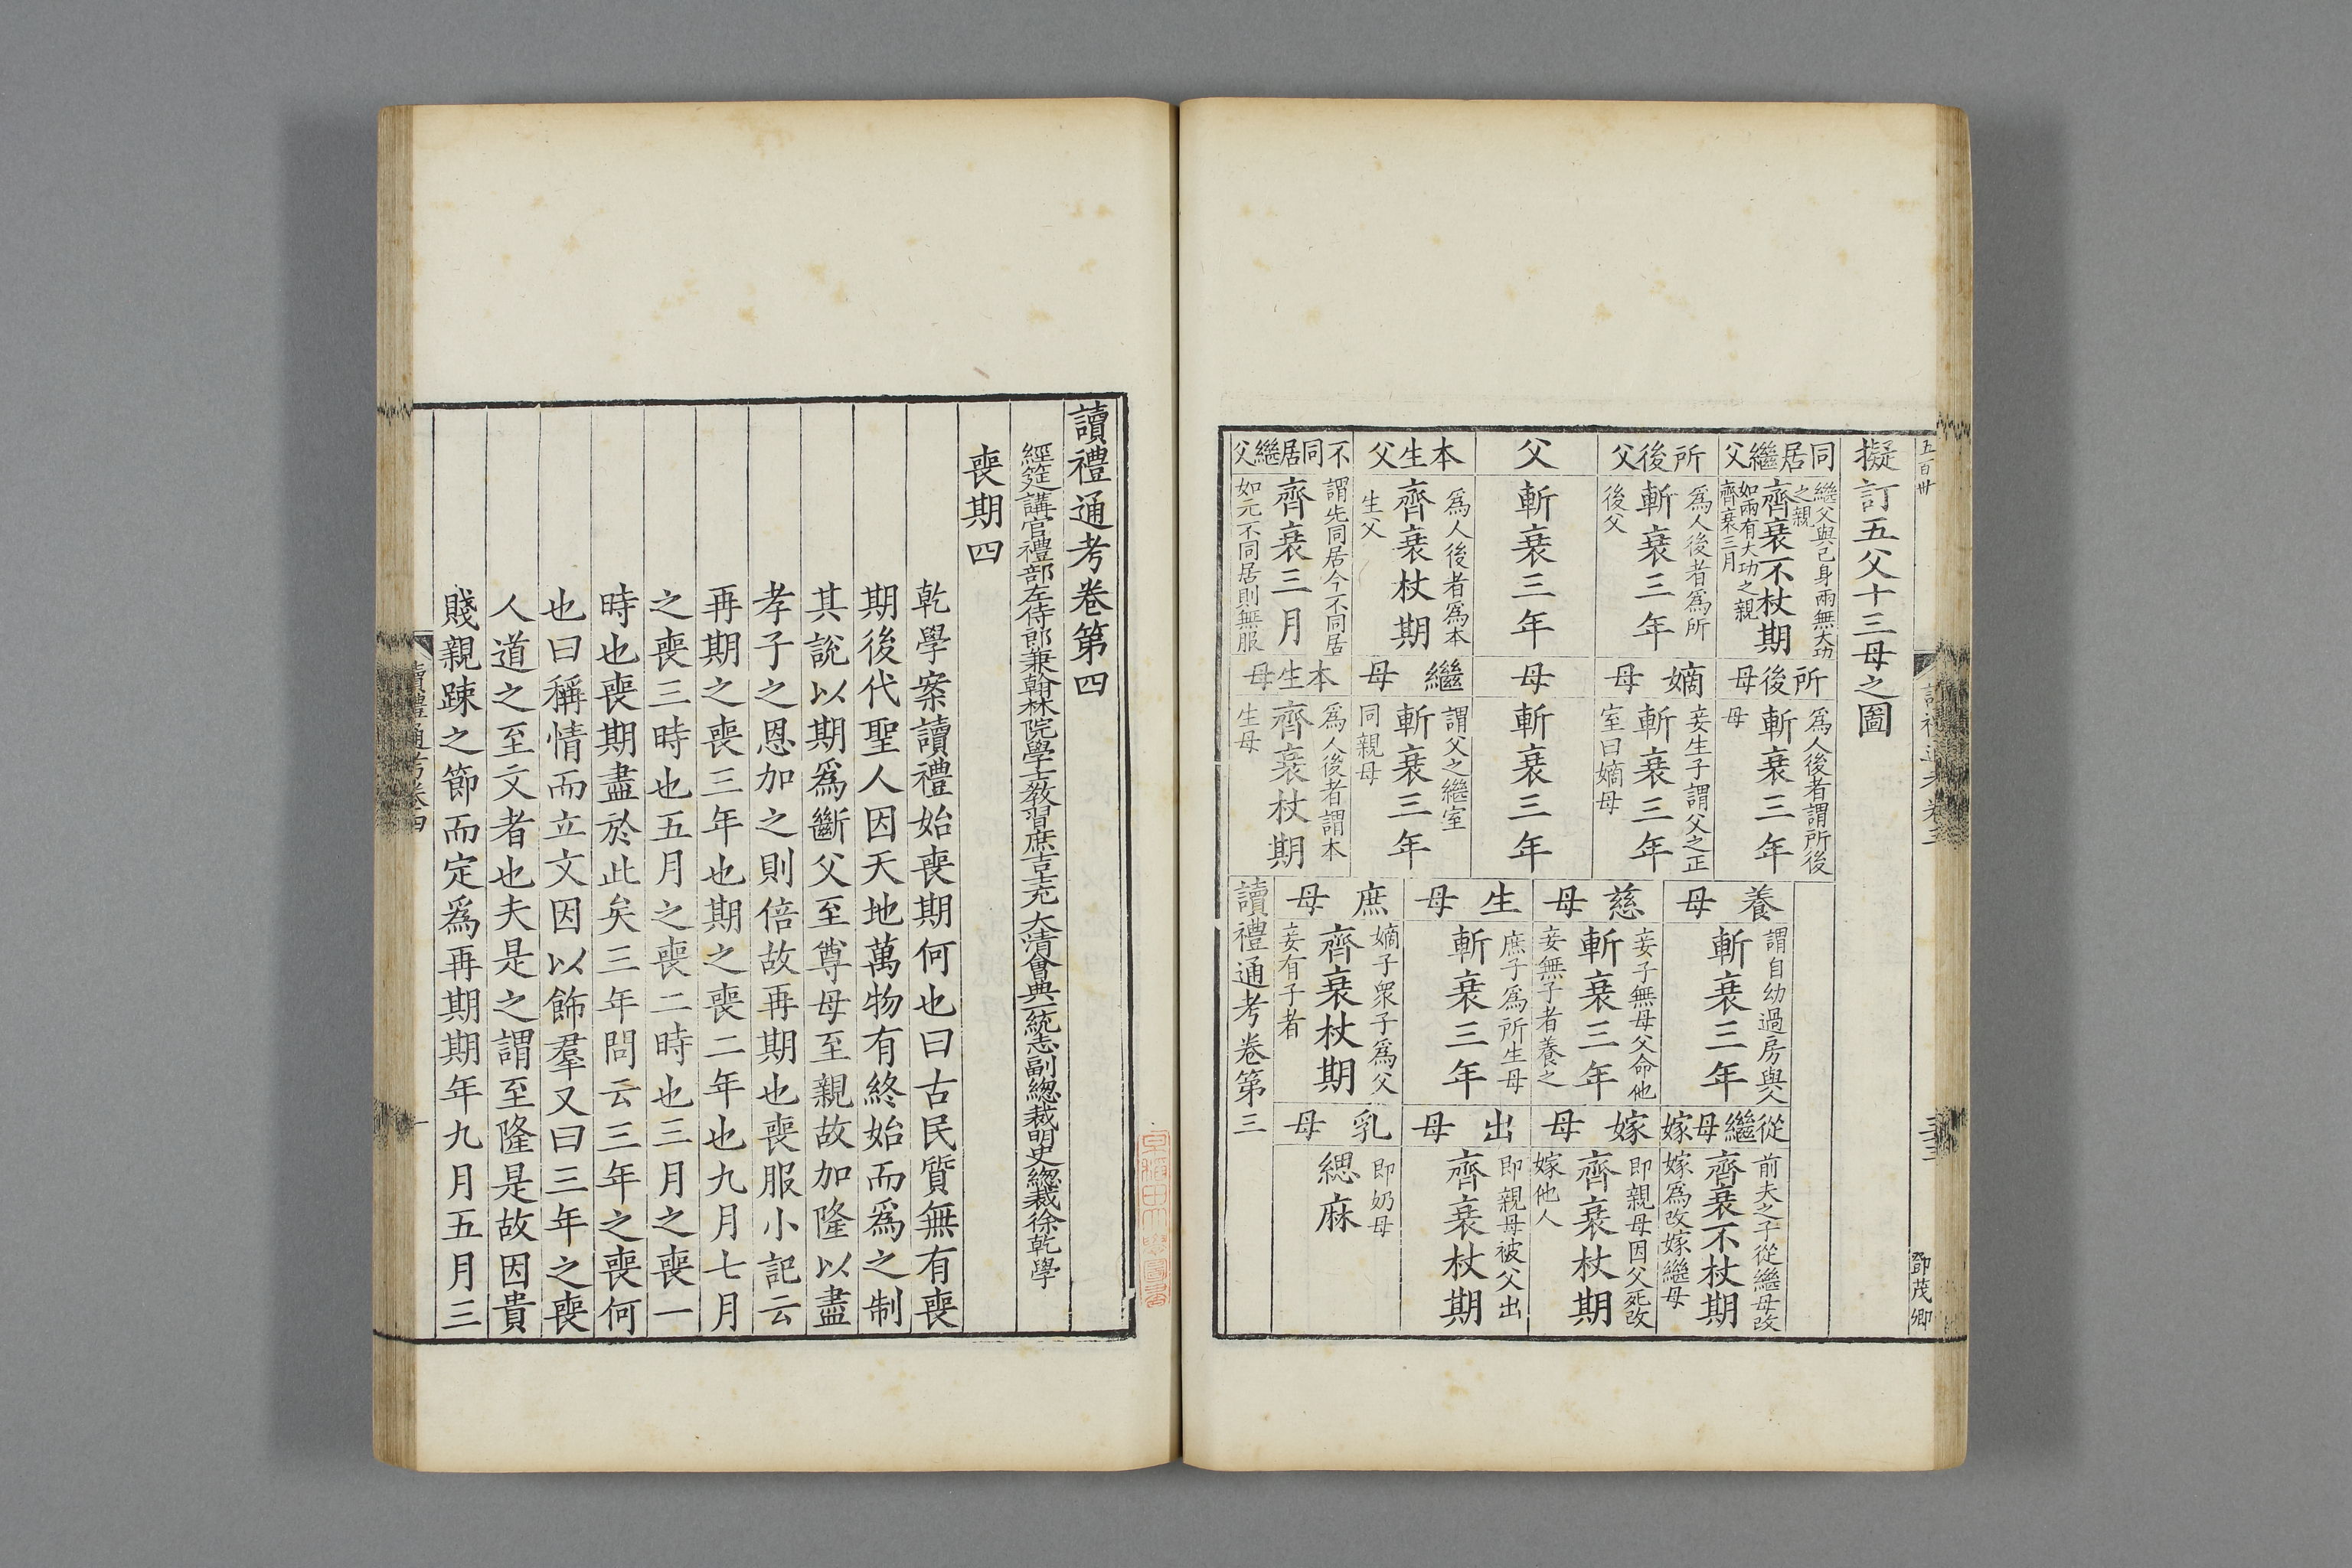 五百卅
鄧茂卿
擬訂五父十三母之圖
同居繼父
繼父與己身兩無大功
之親
齊衰不杖期
如兩有大功之親
齊衰三月
所後父
爲人後者爲所
斬衰三年
後父
父
斬衰三年
本生父
爲人後者爲本
齊衰杖期
生父
不同居繼父
謂先同居今不同居
齊衰三月
如元不同居則無服
所後母
爲人後者謂所後
斬衰三年
母
嫡母
妾生子謂父之正
斬衰三年
室曰嫡母
母
斬衰三年
繼母
謂父之繼室
斬衰三年
同親母
本生母
爲人後者謂本
齊衰杖期
生母
養母
謂自幼過房與人
斬衰三年
慈母
妾子無母父命他
斬衰三年
妾無子者養之
生母
庶子爲所生母
斬衰三年
庶母
嫡子衆子爲父
齊衰杖期
妾有子者
從繼母嫁
前夫之子從繼母改
齊衰不杖期
嫁爲改嫁繼母
嫁母
即親母因父死改
齊衰杖期
嫁他人
出母
即親母被父出
齊衰杖期
乳母
即奶母
緦麻
讀禮通考卷第三
讀禮通考卷第四
經筵講官禮部左侍郎兼翰林院學士教習庶吉士充 大清會典一統志副總裁明史總裁徐乾學
喪期四
乾學案讀禮始喪期何也曰古民質無有喪
期後代聖人因天地萬物有終始而爲之制
其說以期爲斷父至尊母至親故加隆以盡
孝子之恩加之則倍故再期也喪服小記云
再期之喪三年也期之喪二年也九月七月
之喪三時也五月之喪二時也三月之喪一
時也喪期盡於此矣三年問云三年之喪何
也曰稱情而立文因以飾羣又曰三年之喪
人道之至文者也夫是之謂至隆是故因貴
賤親踈之節而定爲再期期年九月五月三
讀禮通考卷四